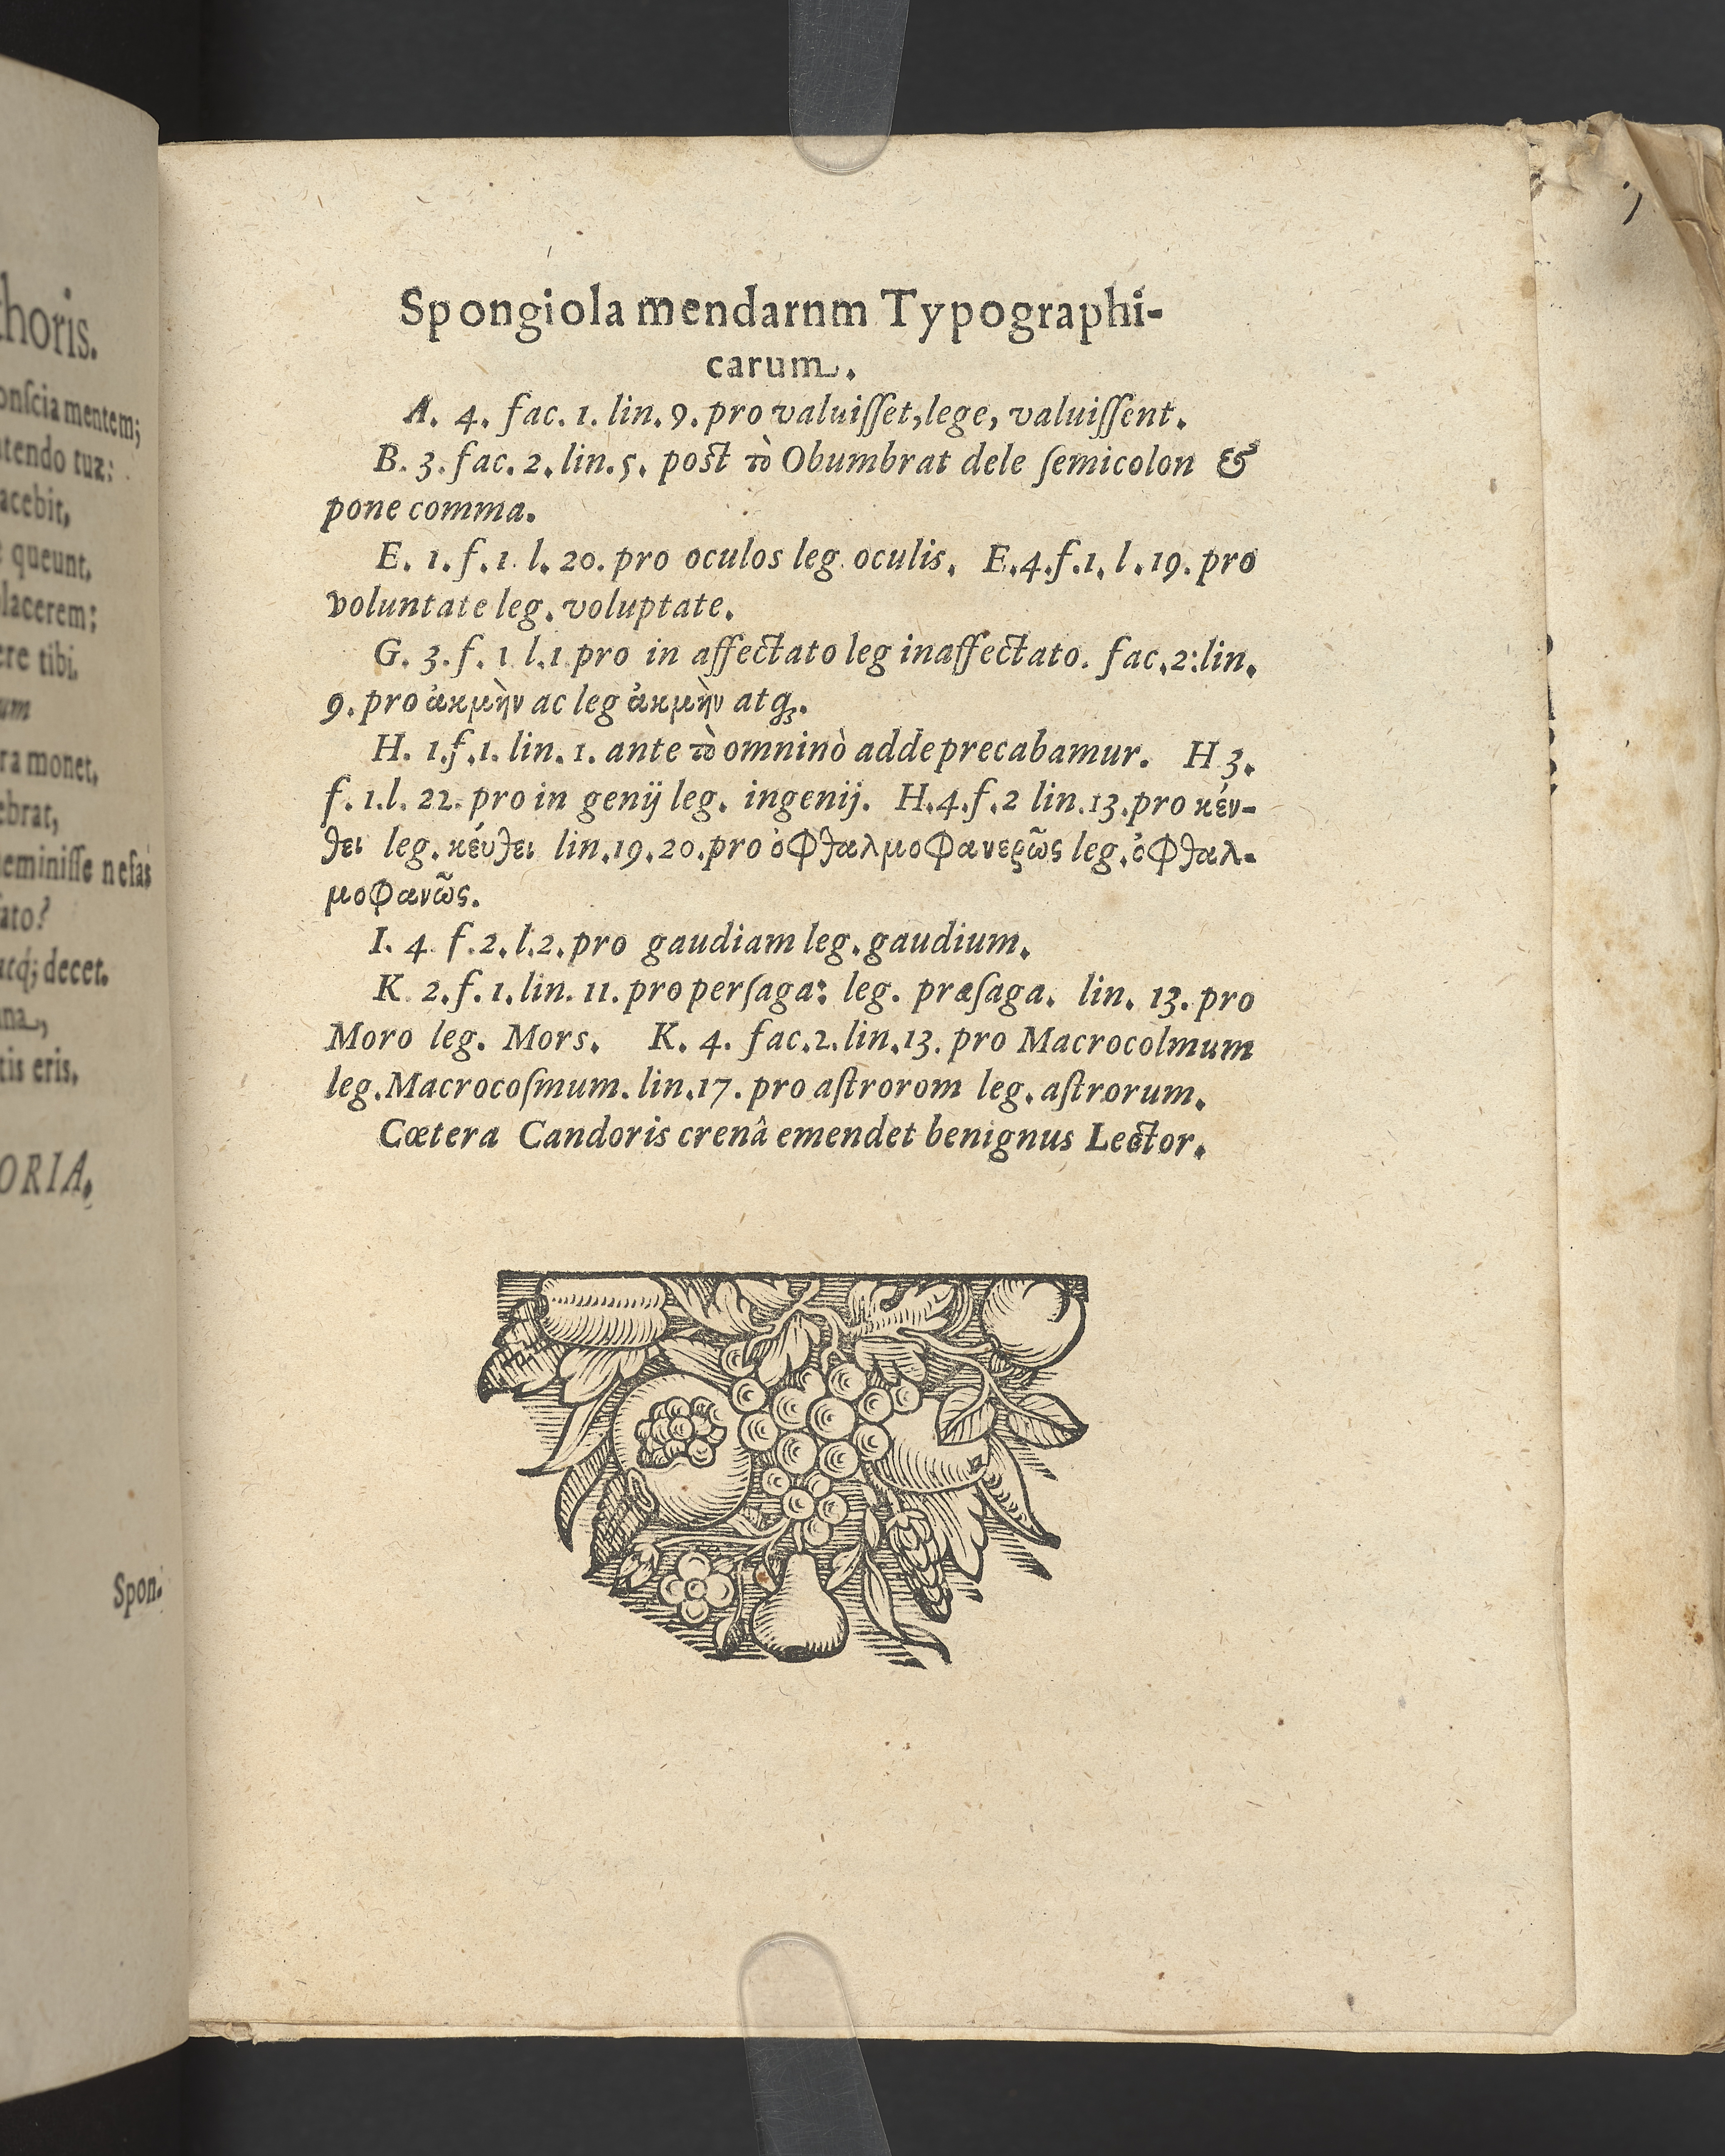 choris.
onſcia mentem;
ntendo tuæ:
acebit,
queunt,
lacerem;
ere tibi.
um
ra monet,
ebrat,
eminiſſe nefas
ato?
atq́; decet.
na,
tis eris.
ORIA.
Spon-
Spongiola mendarnm Typographi-
carum.
A. 4. fac. 1. lin. 9. pro valuiſſet, lege, valuiſſent.
B. 3. fac. 2. lin. 5. poſt τὸ Obumbrat dele ſemicolon &
pone comma.
E. 1. f. 1. l. 20. pro oculos leg. oculis. E. 4. f. 1. l. 19. pro
voluntate leg. voluptate.
G. 3. f. 1 l. 1. pro in affectato leg inaffectato. fac. 2: lin.
9. pro ἀκμὴν ac leg ἀκμὴν atq;.
H. 1. f. 1. lin. 1. ante τὸ omninò adde precabamur. H 3.
f. 1. l. 22. pro in genij leg. ingenij. H. 4. f. 2 lin. 13. pro κέν-
θει leg. κεύθει lin. 19. 20. pro ὀφθαλμοφανερῶς leg. ὀφθαλ-
μοφανῶς.
I. 4 f. 2. l. 2. pro gaudiam leg. gaudium.
K. 2. f. 1. lin. 11. pro perſaga: leg. præſaga. lin. 13. pro
Moro leg. Mors. K. 4. fac. 2. lin. 13. pro Macrocolmum
leg. Macrocoſmum. lin. 17. pro aſtrorom leg. aſtrorum.
Cœtera Candoris crenâ emendet benignus Lector.